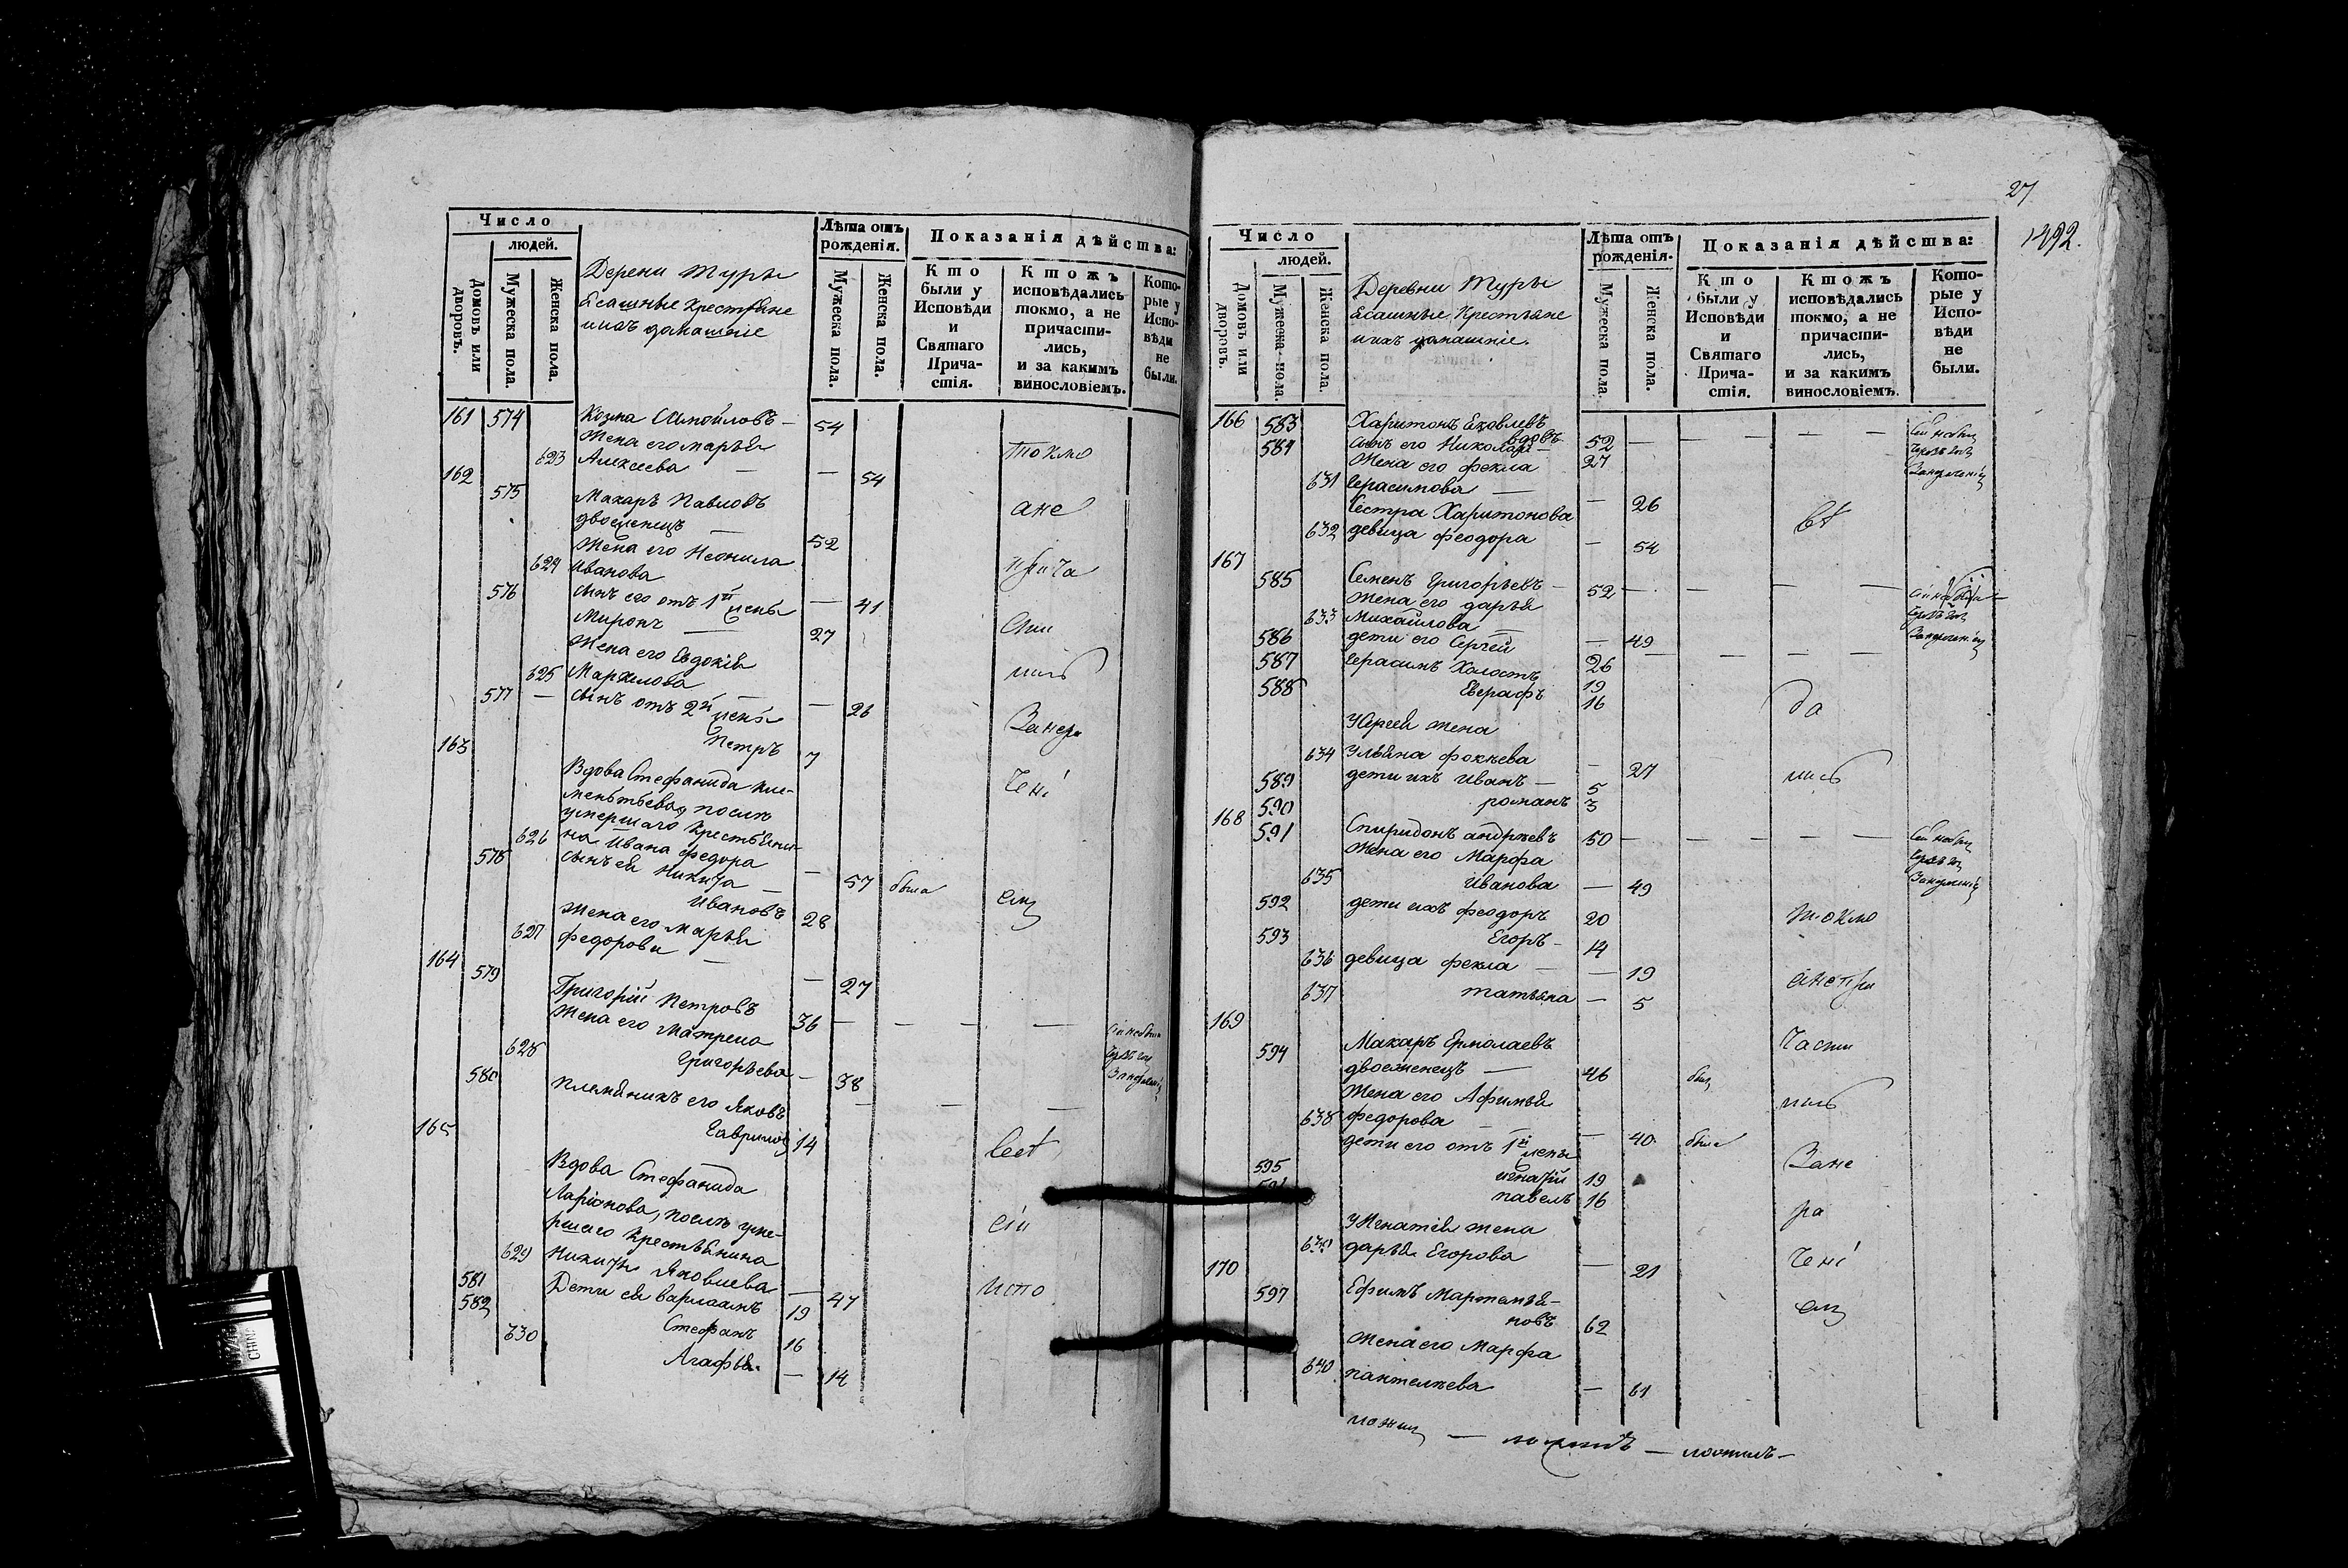 Число
людей.
Домовъ или дворовъ.
Мужеска пола.
Женска пола.
Дерени Туры
Ясашные Крестьяне
и ихъ домашніе
Лѣта отъ рожденія.
Мужеска пола.
Женска пола.
Показанія дѣйства:
Кто были у Исповѣди и Святаго Причастія.
Ктожъ исповѣдались токмо, а не причастились, и за какимъ винословіемъ.
Которые у Исповѣди не были.
161 574 Козма Самойловъ — 54
Жена его марья
623 Алексеева — — 54 токмо
162
575 Макаръ Павловъ
двоеженецъ — 52 ане
Жена его Неонила
624 Иванова — 41 прича
576 сынъ его отъ 1й жены
Миронъ — 27 сти
Жена его Евдокія
625 Маркелова — 26 лись
577 — сынъ отъ 2й жены
Петръ 7 Занера
163
Вдова Стефанида Кли-
ментьева, послѣ
умершаго крестьяни-
626 на Ивана Федора — 57 была чені
578 сынъ ея Никита —
Ивановъ 28 емъ
Жена его Марья
627 федорова — — 27
164
579 Григорій Петровъ 36 — — — —
Жена его Матрена
628 Григорьева — 38
580 племяникъ его Яковъ — — —
Гавриловъ 14
165
Вдова Стефанида
Ларіонова, послѣ уме-
ршаго крестьянина
629 Никиты Яковлева — 47 сіи
581 Дети ея варлаамъ 19 испо
582 Стефанъ 16
630 Агафья — 14
27
1492.
Число
людей.
Домовъ или дворовъ.
Мужеска пола.
Женска пола.
Деревни Туры
Ясашные Крестьяне
и ихъ домашніе.
Лѣта отъ рожденія.
Мужеска пола.
Женска пола.
Показанія дѣйства:
Кто были у Исповѣди и Святаго Причастія.
Ктожъ исповѣдались токмо, а не причастились, и за какимъ винословіемъ.
Которые у Исповѣди не были.
166 583 Харитонъ Яковлевъ
вдовъ 52 — — — — —
584 сынъ его Николай — 27
Жена его фекла
631 Герасимова — — 26
Сестра Харитонова
632 девица феодора — 54 вѣ
167
585 Семенъ Григорьевъ — 52 — — — —
Жена его дарья
633 Михайлова — — 49
586 дети его Сергей 26 — — — —
587 Герасимъ Холостъ 19
588 Еверафъ 16 да
У Сергея жена
634 Ульяна фокиева — 27 лись
589 дети ихъ Иванъ — 5
590 романъ 3
168
591 Спиридонъ андреевъ 50 — — — — —
Жена его Марфа
635 Иванова — 49
592 дети ихъ феодоръ 20 токмо
593 Егоръ — 14
636 девица фекла — — 19 анепри
637 татьяна — 5
169
594 Макаръ Ермолаевъ части
двоеженецъ — 46 былъ
Жена его Афимья лись
638 федорова — — 40 была
дети его отъ 1й жены Зане
595 игнатій 19
павелъ 16 ра
У Игнатія жена
639 дарья Егорова — 21 чені
170
597 Ефимъ Мартемья- емъ
новъ 62
Жена его Марфа
640 пантелеева — 61